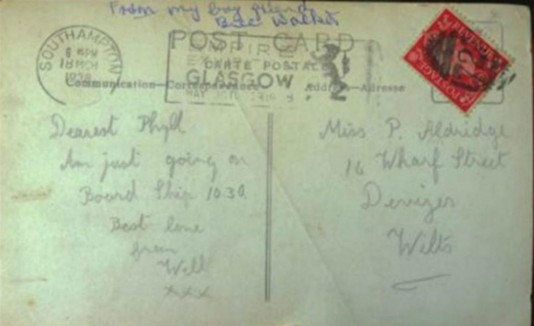 From my boy friend
Bill Walker
SOUTHAMPTON
6 PM
18 MCH
1938
POST CARD
EMPIRE
CARTE POSTALE
GLASGOW
Communication—Correspondance
Address—Adresse
POSTAGE
REVENUE
Dearest Phyll
Am just going on
Board Ship 10.30
Best love
from
Will
xxx
Miss P. Aldridge
16 Wharf Street
Devizes
Wilts